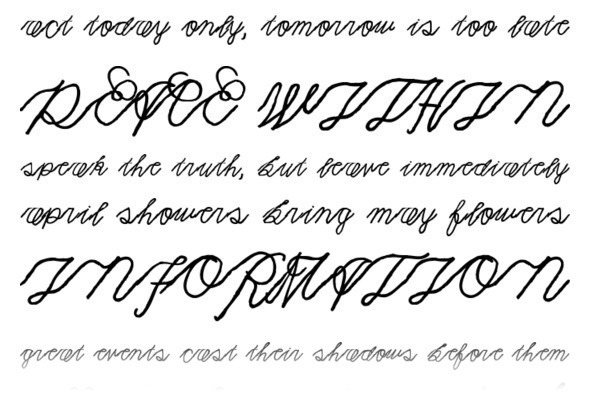 act today only, tomorrow is too late
PEACE WITHIN
speak the truth, but leave immediately
april showers bring may flowers
INFORMATION
great events cast their shadows before them